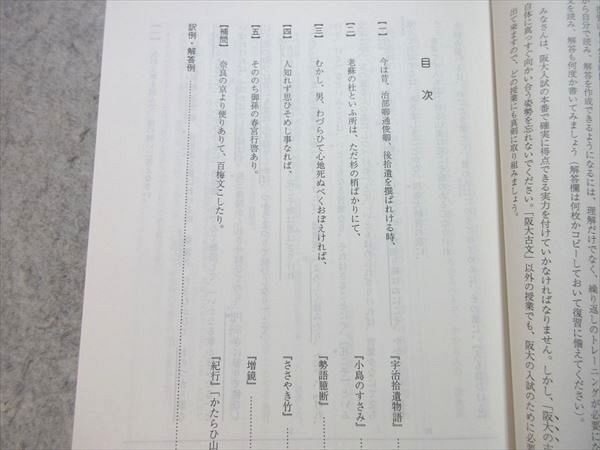 から自分で読み、解答を作成できるようになるには、理解だけでなく、繰り返しのトレーニングが必要にな
文を読み、解答も何度か書いてみましょう（解答欄は何枚かコピーしておいて復習に備えてください）。
みなさんは、阪大入試の本番で確実に得点できる実力を付けていかなければなりません。しかし、「阪大の古
自体に真っすぐ向かい合う姿勢を忘れないでください。「阪大古文」以外の授業でも、阪大の入試のために必要
出て来ますので、どの授業にも真剣に取り組みましょう。
目次
【一】 今は昔、治部卿通俊卿、後拾遺を撰ばれける時、 『宇治拾遺物語』……
【二】 老蘇の杜といふ所は、ただ杉の梢ばかりにて、 『小島のすさみ』……
【三】 むかし、男、わづらひて心地死ぬべくおぼえければ、 『勢語臆断』……
【四】 人知れず思ひそめし事なれば、 『ささやき竹』……
【五】 そののち御孫の春宮行啓あり。 『増鏡』……
【補問】 奈良の京より便りありて、百梅文こしたり。 『紀行』『かたらひ山
訳例・解答例……